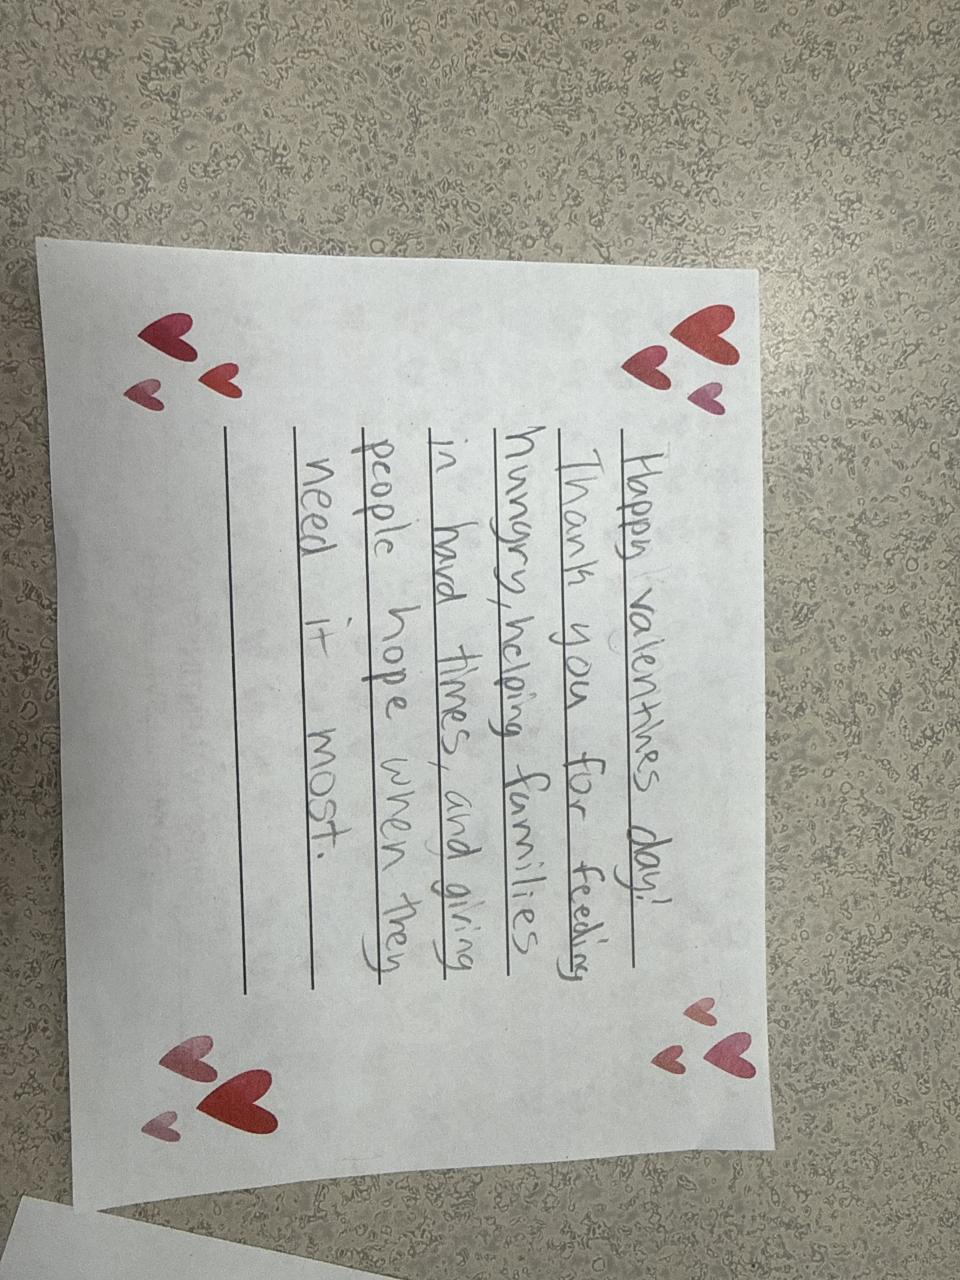 Happy valentines day!
Thank you for feeding
hungry, helping families
in hard times, and giving
people hope when they
need it most.